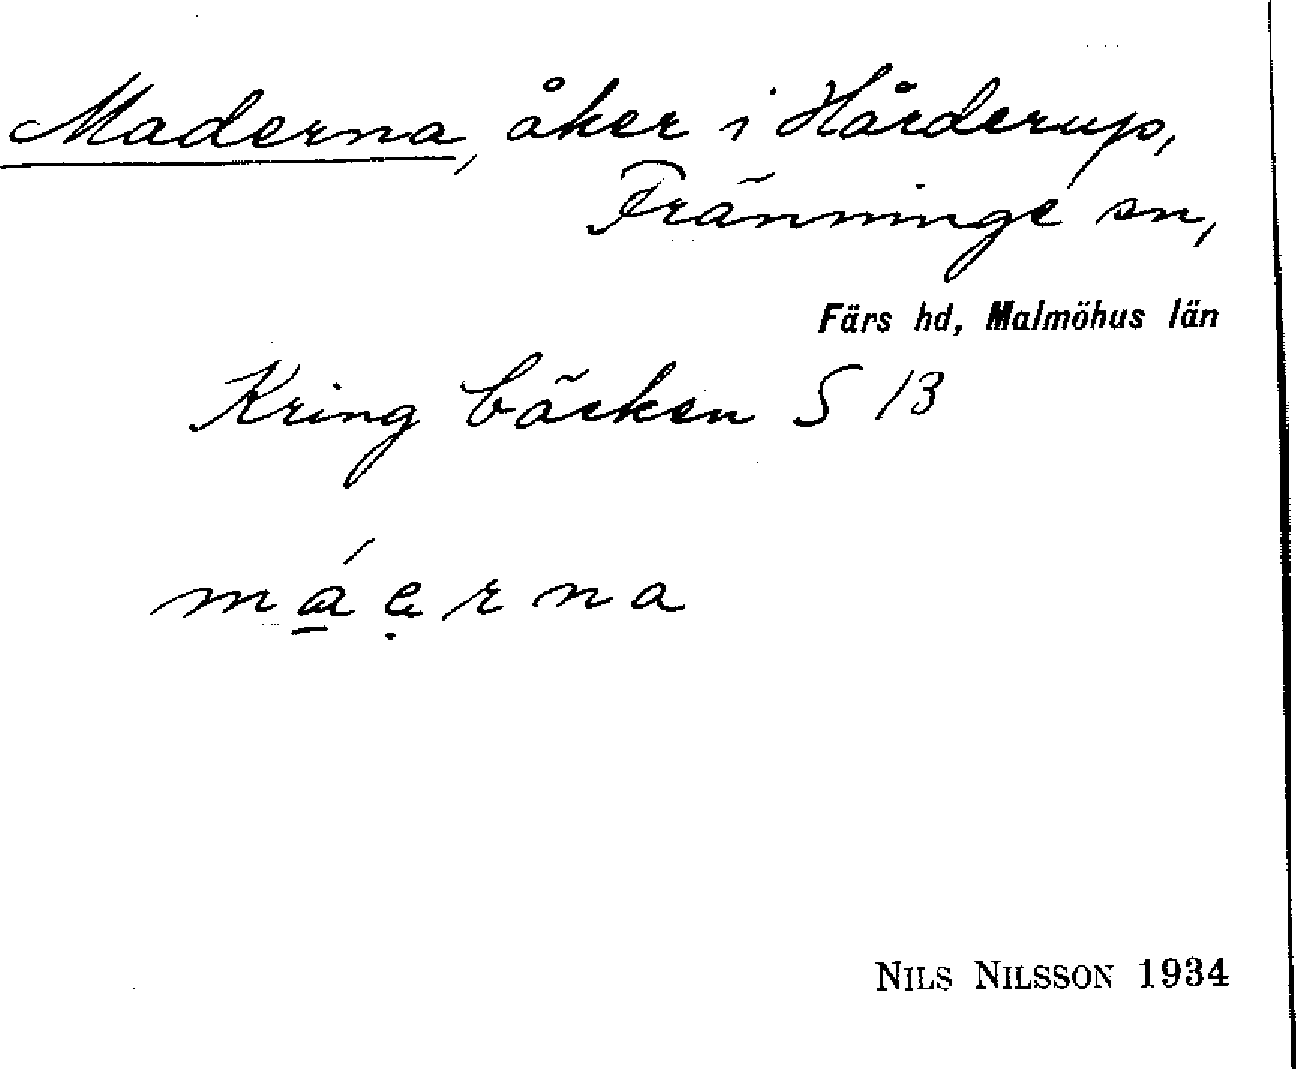 Maderna, åker i Hårderup,
Fränninge sn,
Färs hd, Malmöhus län
Kring bäcken S 13
má̱ẹrna
NILS NILSSON 1934